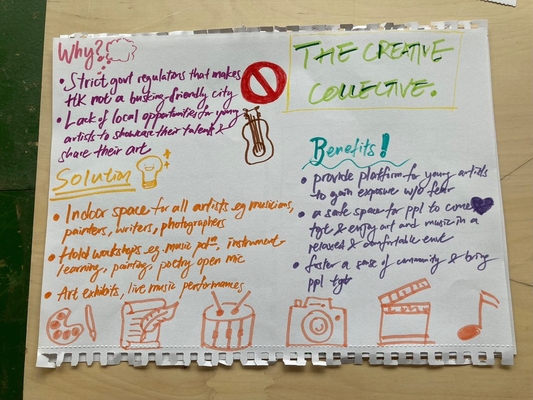 Why?
• Strict govt regulations that makes
HK not a busking-friendly city
• Lack of local opportunities for young
artists to showcase their talents &
share their art
Solution
• Indoor space for all artists eg musicians,
painters, writers, photographers
• Hold workshops eg. music pdtn, instrument
learning, painting, poetry open mic
• Art exhibits, live music performances
THE CREATIVE
COLLECTIVE.
Benefits!
• provide platform for young artists
to gain exposure w/o fear
• a safe space for ppl to come
tgt & enjoy art and music in a
relaxed & comfortable env
• foster a sense of community & bring
ppl tgtr